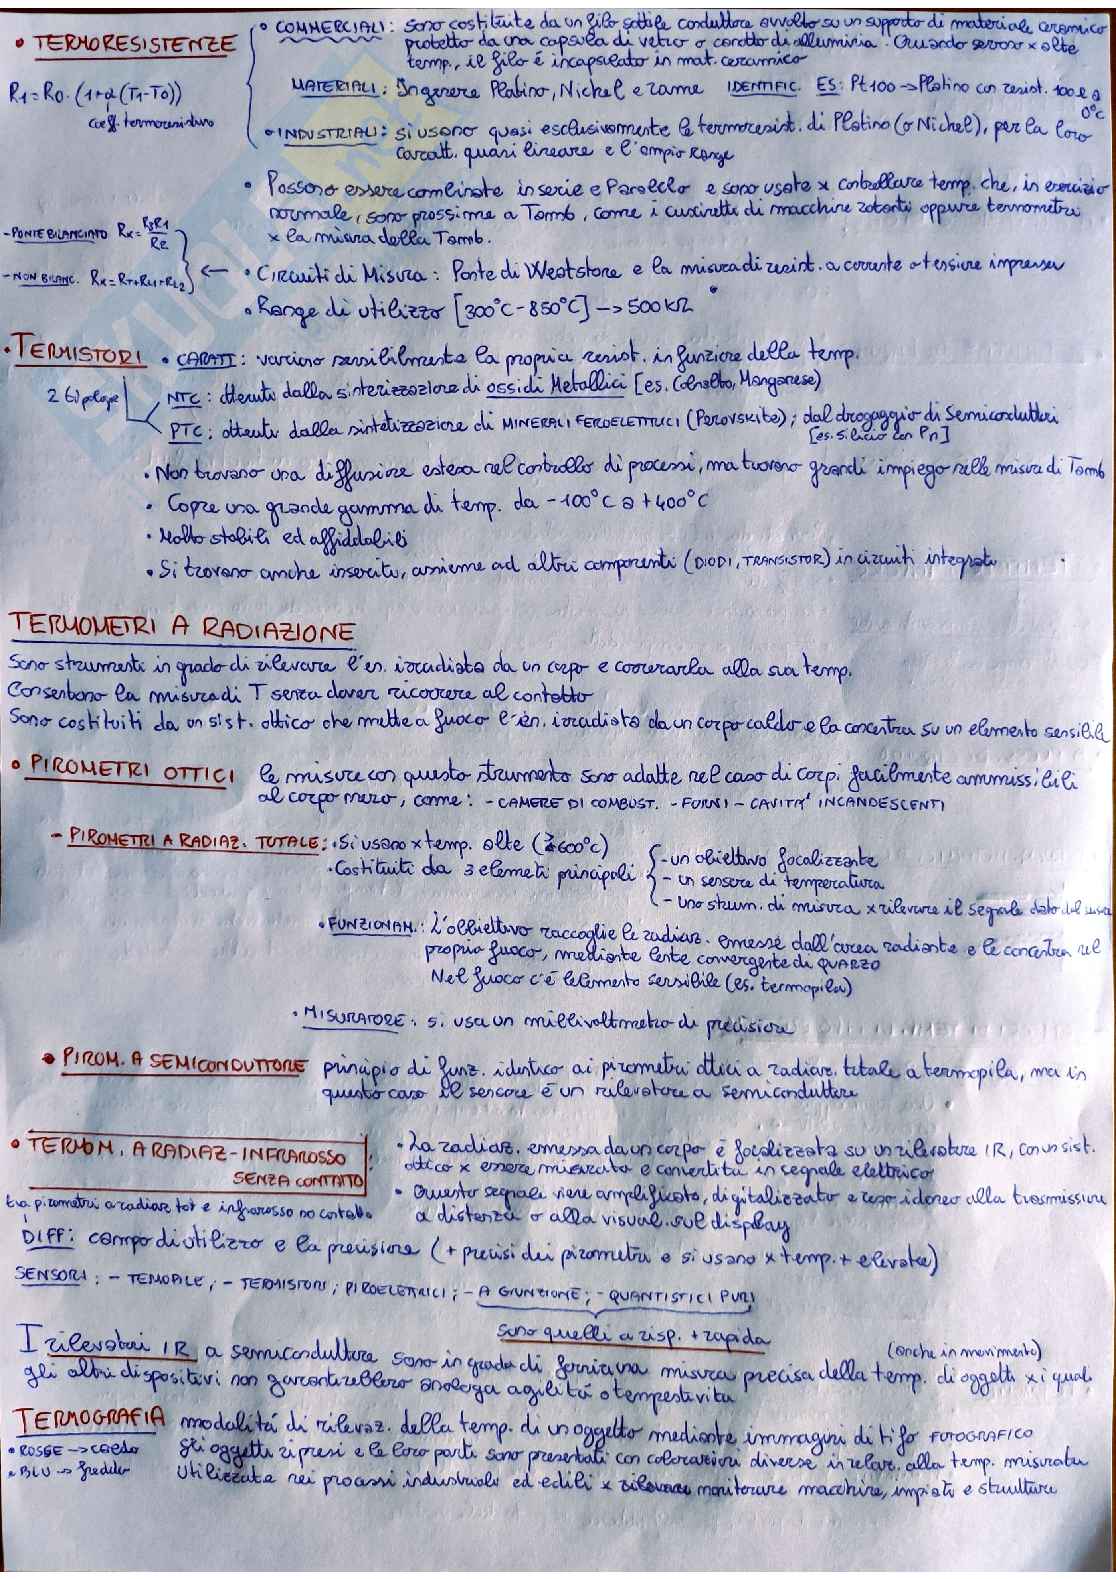 • TERMORESISTENZE
R1 = R0 · (1+α(T1-T0))
coeff. termoresistivo
• COMMERCIALI: sono costituite da un filo sottile conduttore avvolto su un supporto di materiale ceramico
protetto da una capsula di vetro o condotto di alluminia. Quando servono x alte
temp., il filo é incapsulato in mat. ceramico
MATERIALI: In genere Platino, Nichel e rame IDENTIFIC. ES: Pt100 → Platino con resist. 100Ω a
0°C
• INDUSTRIALI: si usano quasi esclusivamente le termoresist. di Platino (o Nichel), per la loro
caratt. quasi lineare e l'ampio Range
• Possono essere combinate in serie e Parallelo e sono usate x controllare temp. che, in esercizio
normale, sono prossime a Tamb, come i cuscinetti di macchine rotanti oppure termometri
x la misura della Tamb.
- PONTE BILANCIATO Rx = R3R1/R2
- NON BILANC. Rx = RT+RL1+RL2
← • Circuiti di Misura: Ponte di Weatstone e la misura di resist. a corrente o tensione impressa
• Range di utilizzo [300°C - 850°C] → 500 kΩ
• TERMISTORI • CARATT: variano sensibilmente la propria resist. in funzione della temp.
2 tipologie
NTC: ottenuti dalla sinterizzazione di ossidi Metallici [es. Cobalto, Manganese)
PTC: ottenuti dalla sintetizzazione di MINERALI FEROELETTRICI (Perovskite); dal drogaggio di Semiconduttori
[es. Silicio con Pn]
• Non trovano una diffusione estesa nel controllo di processi, ma trovano grandi impiego nelle misure di Tamb
• Copre una grande gamma di temp. da -100°C a +400°C
• Molto stabili ed affidabili
• Si trovano anche inseriti, assieme ad altri componenti (DIODI, TRANSISTOR) in circuiti integrati
TERMOMETRI A RADIAZIONE
Sono strumenti in grado di rilevare l'en. irradiata da un corpo e correrarla alla sua temp.
Consentono la misura di T senza dover ricorrere al contatto
Sono costituiti da un sist. ottico che mette a fuoco l'en. irradiata da un corpo caldo e la concentra su un elemento sensibile
• PIROMETRI OTTICI le misure con questo strumento sono adatte nel caso di corpi facilmente ammissibili
al corpo nero, come: - CAMERE DI COMBUST. - FORNI - CAVITA' INCANDESCENTI
- PIROMETRI A RADIAZ. TOTALE: • Si usano x temp. alte (≥600°C)
• Costituiti da 3 elemeti principali
- un obiettivo focalizzante
- un sensore di temperatura
- uno strum. di misura x rilevare il segnale dato dal sensore
• FUNZIONAM.: L'obbiettivo raccoglie le radiaz. emesse dall'area radiante e le concentra nel
proprio fuoco, mediante lente convergente di QUARZO
Nel fuoco c'é l'elemento sensibile (es. termopila)
• MISURATORE: si usa un millivoltmetro di precisione
• PIROM. A SEMICONDUTTORE principio di funz. identico ai pirometri ottici a radiaz. totale a termopila, ma in
questo caso il sensore é un rilevatore a semiconduttore
• TERMOM. A RADIAZ-INFRAROSSO
SENZA CONTATTO:
• La radiaz. emessa da un corpo é focalizzata su un rilevatore IR, con un sist.
ottico x essere misurata e convertita in segnale elettrico
• Questo segnale viene amplificato, digitalizzato e reso idoneo alla trasmissione
a distanza o alla visual. sul display
tra pirometri a radiaz tot e infrarosso no contatto
DIFF: campo di utilizzo e la precisione (+ precisi dei pirometri e si usano x temp. + elevate)
SENSORI: - TEMOPILE; - TERMISTORI; PIROELETTRICI; - A GIUNZIONE; - QUANTISTICI PURI
sono quelli a risp. + rapida
I rilevatori IR a semiconduttore sono in grado di fornire una misura precisa della temp. di oggetti x i quali
(anche in movimento)
gli altri dispositivi non garantirebbero analoga agilitá o tempestivita
TERMOGRAFIA modalitá di rilevaz. della temp. di un oggetto mediante immagini di tipo FOTOGRAFICO
• ROSSE → caldo
• BLU → freddo
gli oggetti ripresi e le loro parti sono presentati con colorazioni diverse in relaz. alla temp. misurata
Utilizzata nei processi industriali ed edili x rilevare monitorare macchine, impianti e strutture
SKUOLA.net